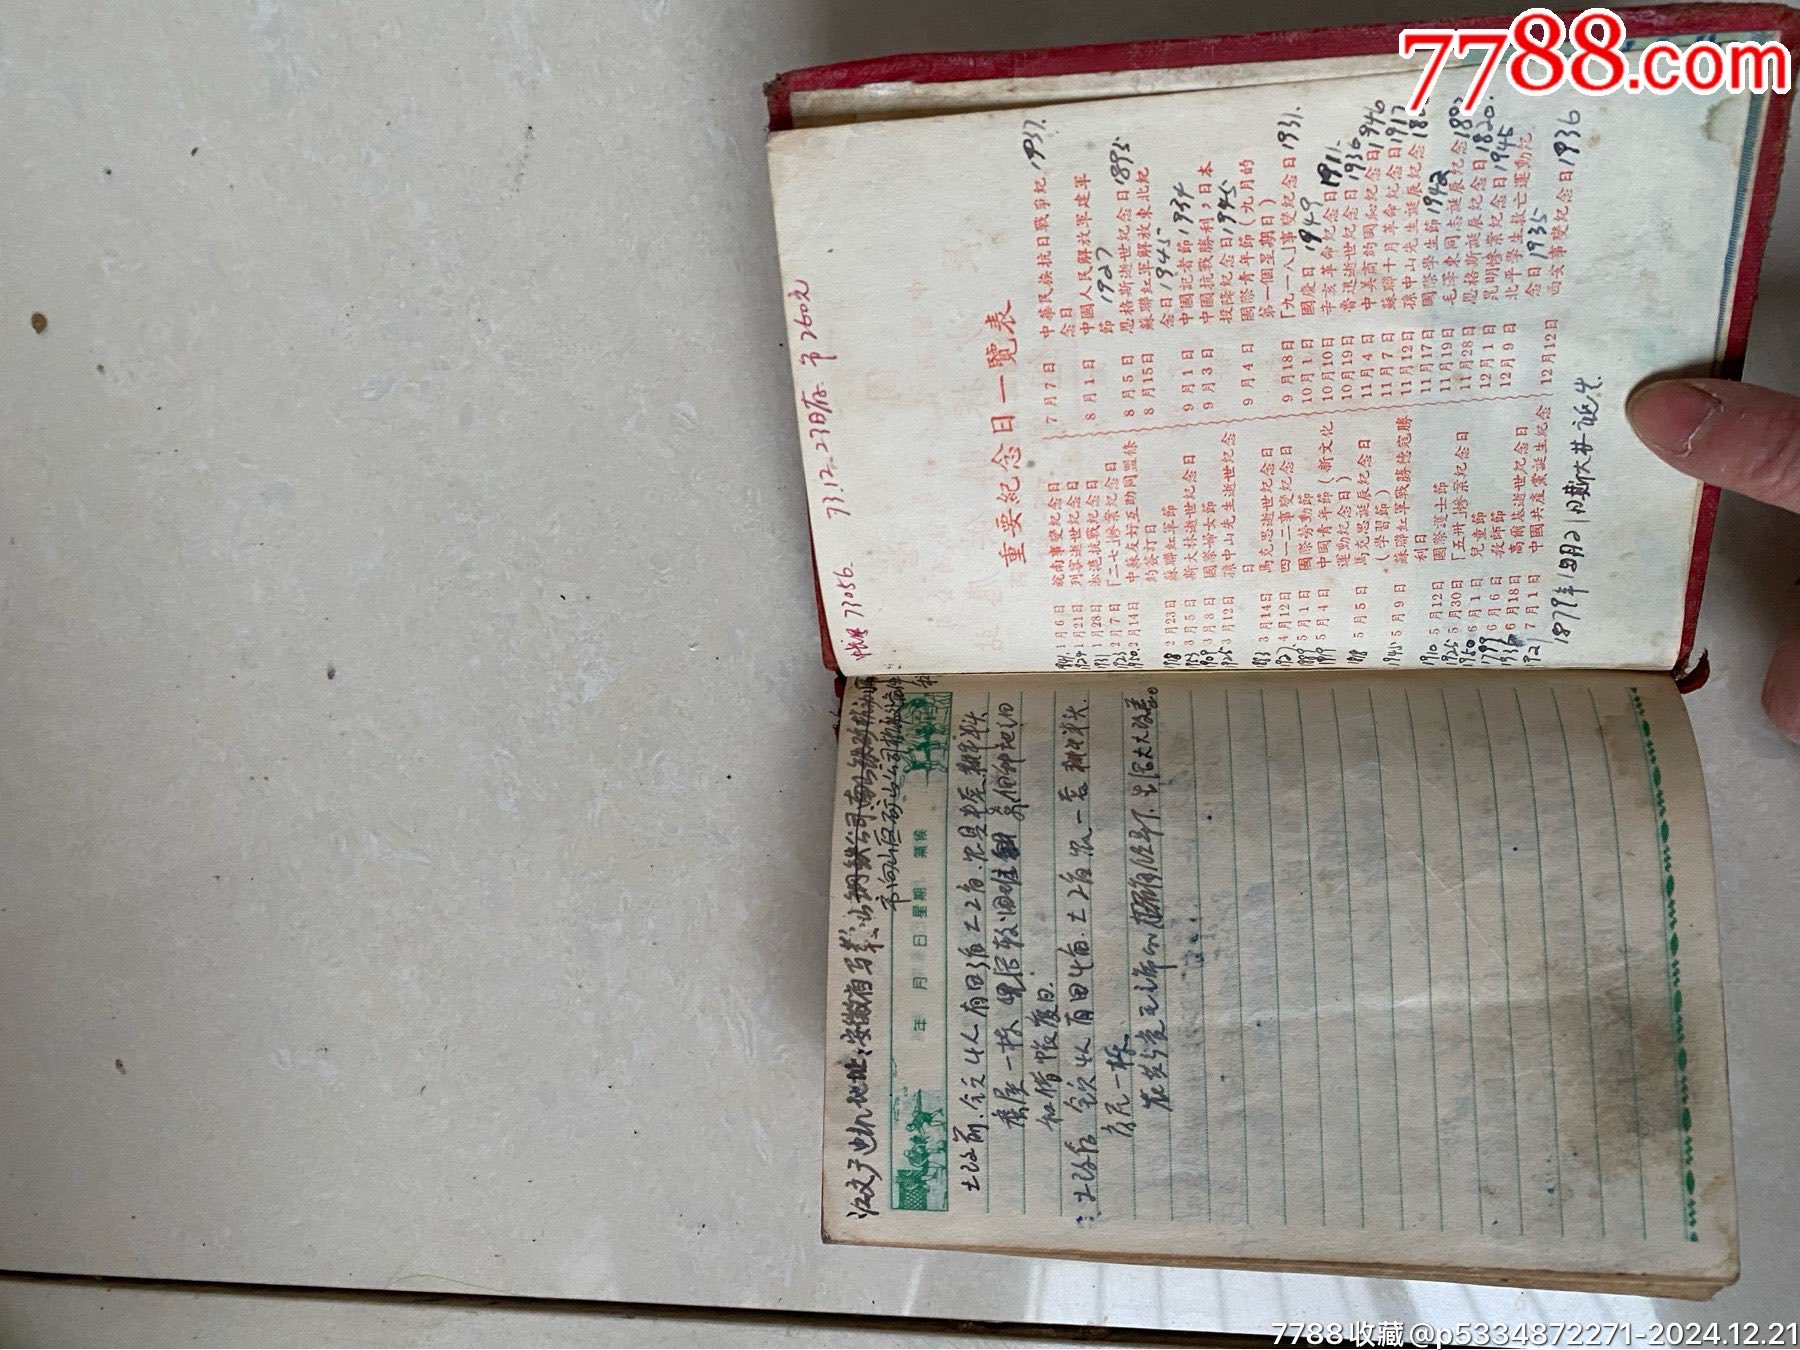 7788.com
帐号 73056. 73.12.23日存 币260元
重要紀念日一覽表
1941. 1月6日 皖南事變紀念日
1924 1月21日 列寧逝世紀念日
1932 1月28日 淞滬抗戰紀念日
1923 2月7日 「二七」慘案紀念日
1950 2月14日 中蘇友好互助同盟條
約簽訂日
1918 2月23日 蘇聯紅軍節
1953 3月5日 斯大林逝世紀念日
1909 3月8日 國際婦女節
1925 3月12日 孫中山先生逝世紀念
日
1883 3月14日 馬克思逝世紀念日
1927 4月12日 四一二事變紀念日
1889 5月1日 國際勞動節
1919 5月4日 中國青年節（新文化
運動紀念日）
1818 5月5日 馬克思誕辰紀念日
（學習節）
1945 5月9日 蘇聯紅軍戰勝德寇勝
利日
1910 5月12日 國際護士節
1925 5月30日 「五卅」慘案紀念日
1950 6月1日 兒童節
1799 6月6日 教師節
1936 6月18日 高爾基逝世紀念日
1921 7月1日 中國共產黨誕生紀念
7月7日 中華民族抗日戰爭紀 1937.
念日
8月1日 中國人民解放軍建軍
節 1927
8月5日 恩格斯逝世紀念日 1895
8月15日 蘇聯紅軍解放東北紀
念日 1945
9月1日 中國記者節 1934
9月3日 中國抗戰勝利，日本
投降紀念日 1945
9月4日 國際青年節（九月的
第一個星期日）
9月18日 「九一八」事變紀念日 1931.
10月1日 國慶日 1949
10月10日 辛亥革命紀念日 1911.
10月19日 魯迅逝世紀念日 1936
11月4日 中美商約國恥紀念日 1946
11月7日 蘇聯十月革命紀念日 1917
11月12日 孫中山先生誕辰紀念 18
11月17日 國際學生節 1942
11月19日 毛澤東同志誕辰紀念 189
11月28日 恩格斯誕辰紀念日 1820.
12月1日 昆明慘案紀念日 1945
12月9日 北平學生救亡運動紀
念日 1935
12月12日 西安事變紀念日 1936
1879年12月21日斯大林诞生.
地址：安徽省马
市向山区矿山公司
年 月 日 星期 氣候
土改前.全家4人有田3亩土2亩.农具耕牛
房屋一栋 生活较困难
和借帐度日.
土改后 全家4人有田4亩.土2亩农一套 耕牛
房屋一栋
在党和毛主席的领导下.生活大大改善。
7788收藏@p5334872271-2024.12.21